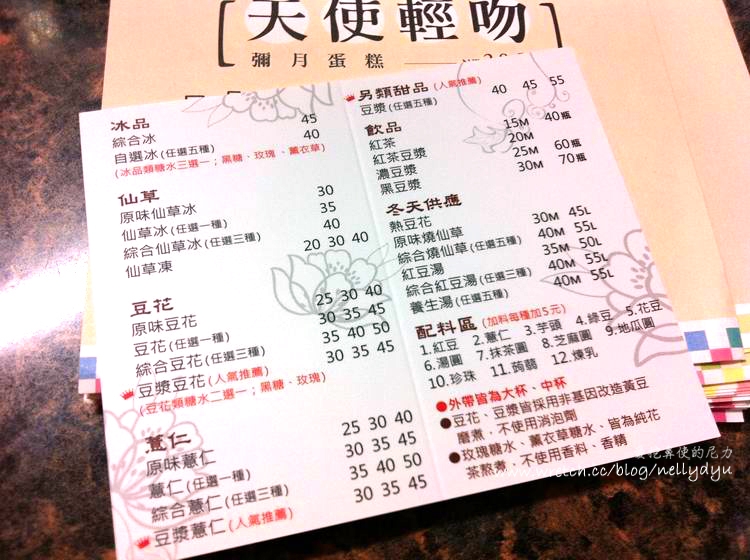 天使輕吻
彌月蛋糕
冰品
綜合冰 45
自選冰(任選五種) 40
(冰品類糖水三選一;黑糖、玫瑰、薰衣草)
仙草
原味仙草冰 30
仙草冰(任選一種) 35
綜合仙草冰(任選三種) 40
仙草凍 20 30 40
豆花
原味豆花 25 30 40
豆花(任選一種) 30 35 45
綜合豆花(任選三種) 35 40 50
豆漿豆花(人氣推薦) 30 35 45
(豆花類糖水二選一;黑糖、玫瑰)
薏仁
原味薏仁 25 30 40
薏仁(任選一種) 30 35 45
綜合薏仁(任選三種) 35 40 50
豆漿薏仁(人氣推薦) 30 35 45
另類甜品(人氣推薦)
豆漿(任選五種) 40 45 55
飲品
紅茶 15M 40瓶
紅茶豆漿 20M
濃豆漿 25M 60瓶
黑豆漿 30M 70瓶
冬天供應
熱豆花 30M 45L
原味燒仙草 40M 55L
綜合燒仙草(任選五種) 35M 50L
紅豆湯
綜合紅豆湯(任選三種) 40M 55L
養生湯(任選五種) 40M 55L
配料區 (加料每種加5元)
1.紅豆 2.薏仁 3.芋頭 4.綠豆 5.花豆
6.湯圓 7.抹茶圓 8.芝麻圓 9.地瓜圓
10.珍珠 11.蒟蒻 12.煉乳
●外帶皆為大杯、中杯
●豆花、豆漿皆採用非基因改造黃豆
磨煮,不使用消泡劑
●玫瑰糖水、薰衣草糖水、皆為純花
茶熬煮,不使用香料、香精
的尼力
cc/blog/nellydyu